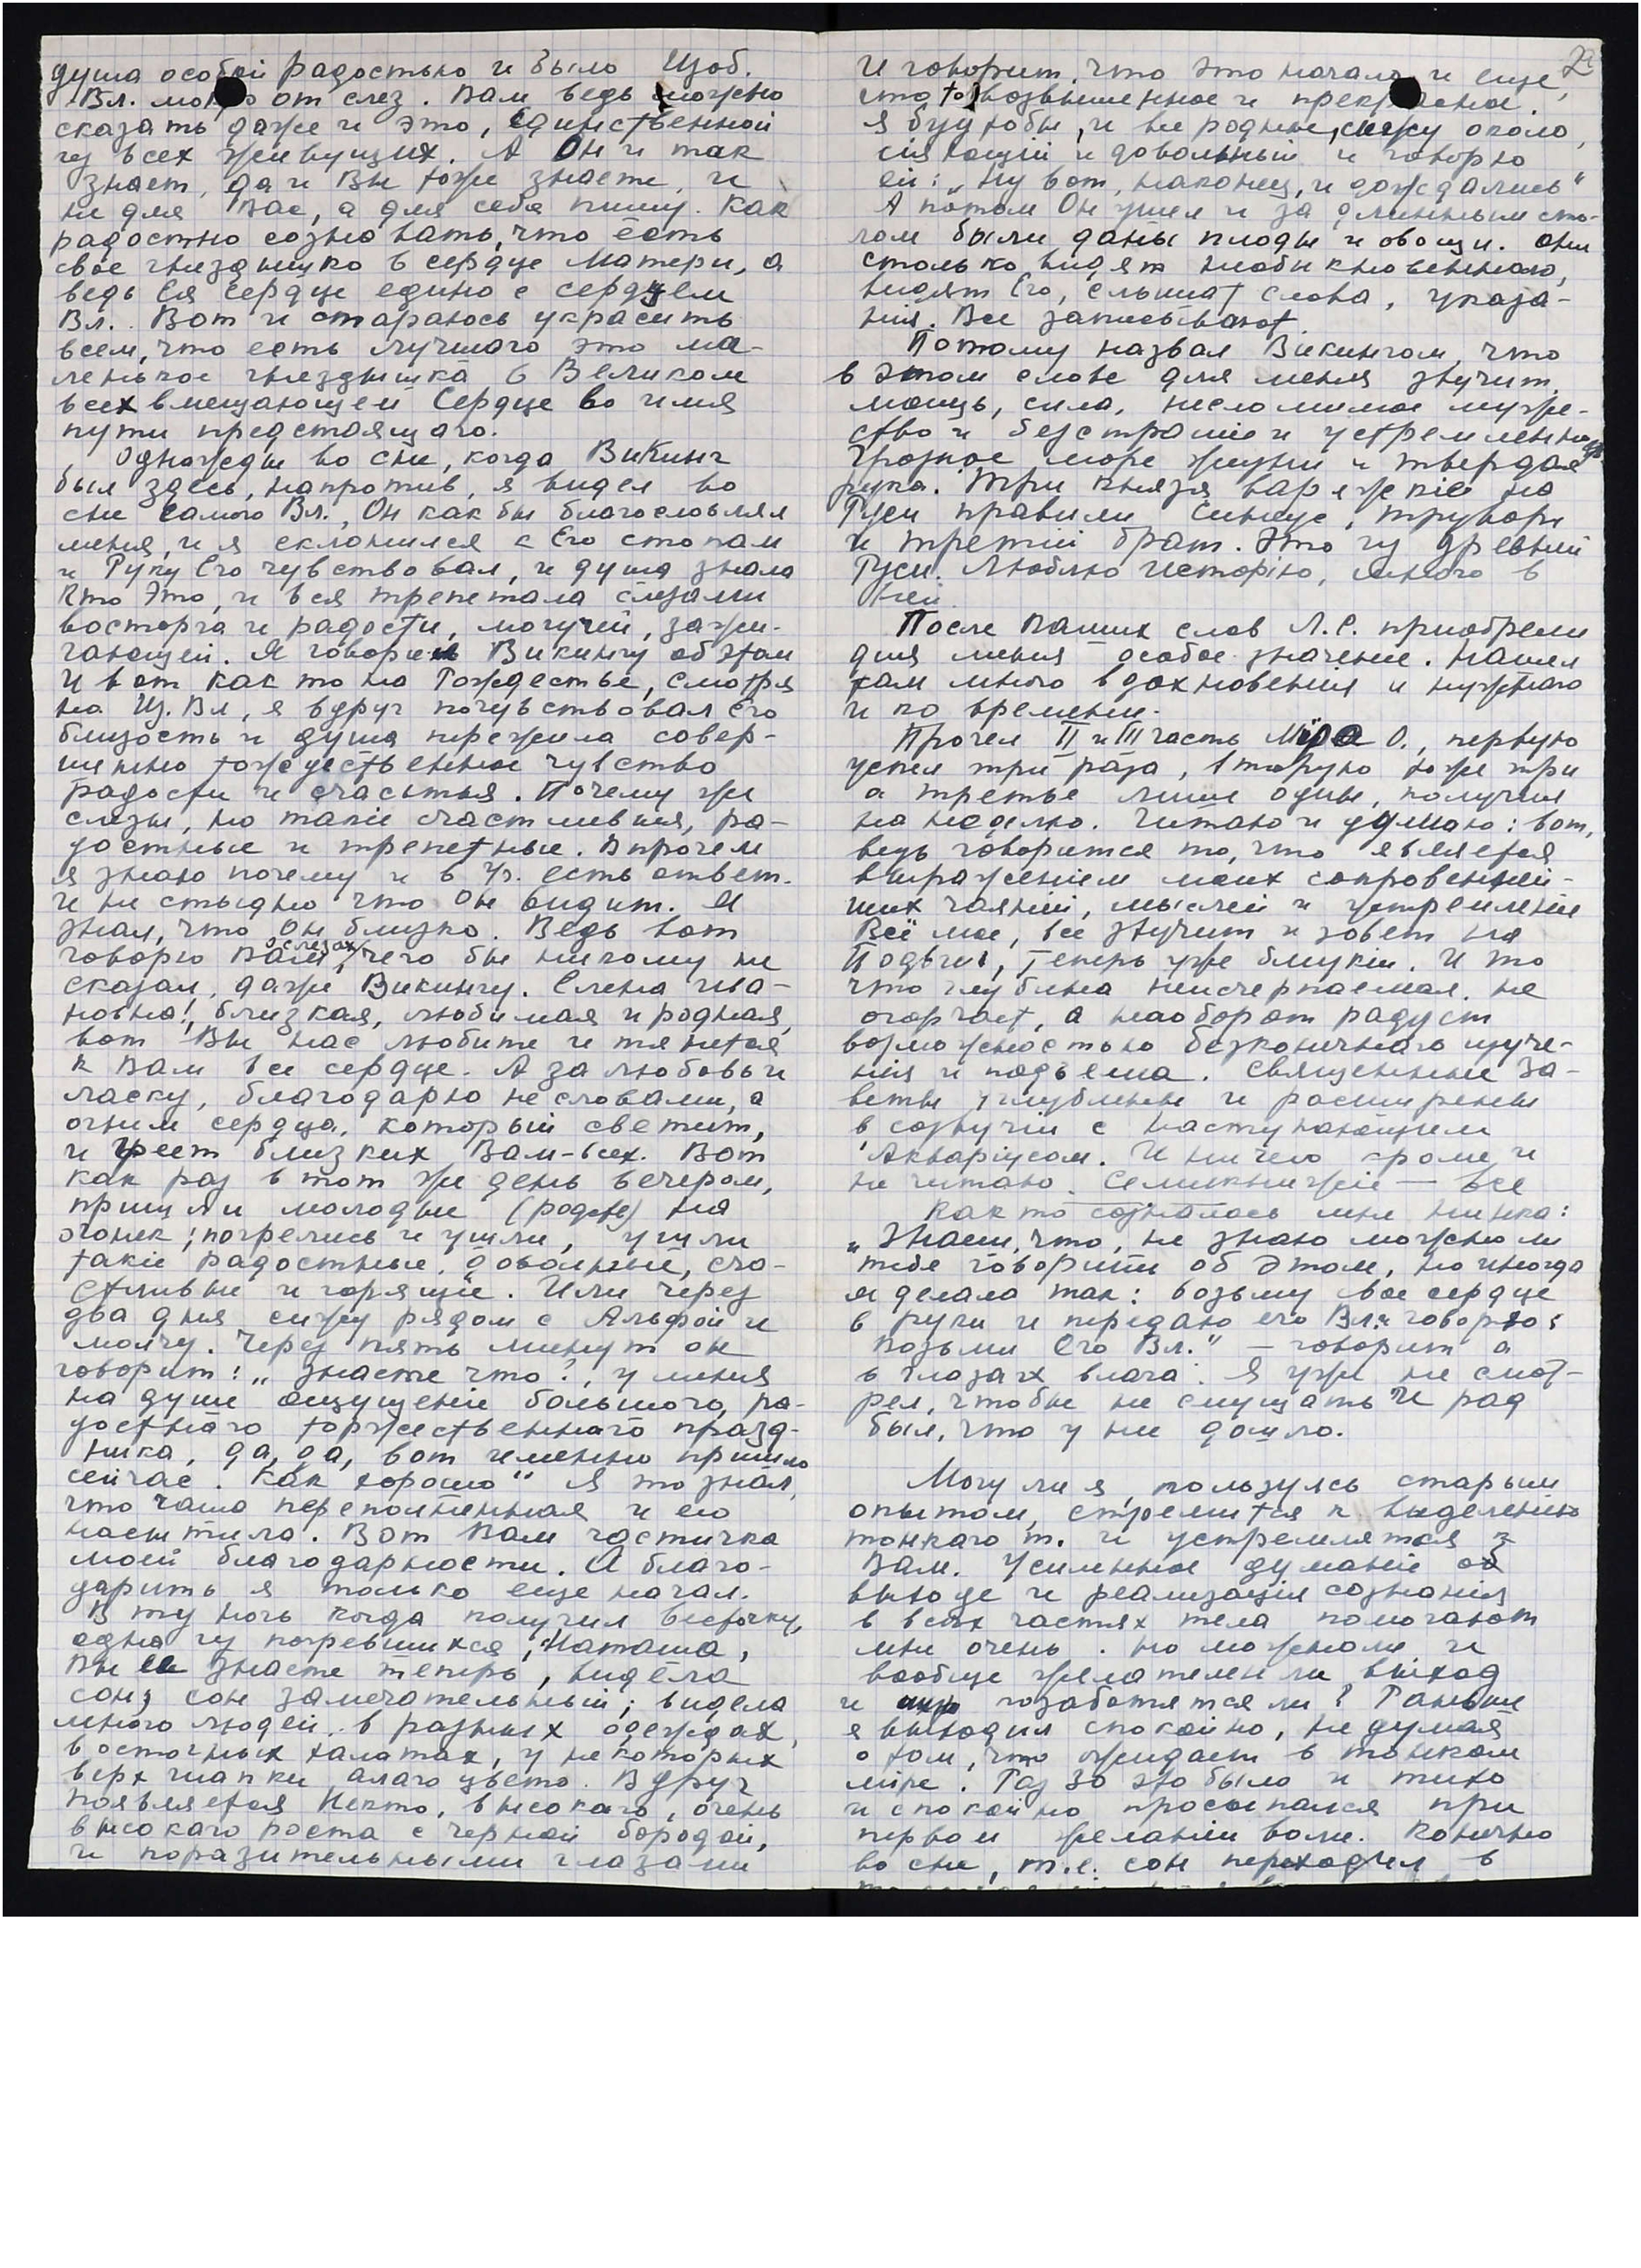 душа особой радостью и было Изоб.
Вл. мокро от слез. Вам ведь можно
сказать даже и это, единственной
из всех живущих. А Он и так
знает, да и Вы тоже знаете, и
не для Вас, а для себя пишу. Как
радостно сознавать, что есть
свое гнездышко в сердце Матери, а
ведь Ея Сердце едино с сердцем
Вл. Вот и стараюсь украсить
всем, что есть лучшаго это ма-
ленькое гнездышка в Великом
всех вмещающем Сердце во имя
пути предстоящаго.
Однажды во сне, когда Викинг
был здесь, напротив, я видел во
сне самого Вл., Он как бы благословлял
меня, и я склонился к Его стопам
и Руку Его чувствовал, и душа знала
Кто Это, и вся трепетала слезами
восторга и радости, могучей, зажи-
гающей. Я говорил Викингу об этом
И вот как то на Рождестве, смотря
на Из. Вл, я вдруг почувствовал Его
близость и душа пережила совер-
шенно тождественное чувство
радости и счастья. Почему же
слезы, но такие счастливыя, ра-
достные и трепетные. Впрочем
я знаю почему и в Уч. есть ответ.
и не стыдно что Он видит. Я
знал, что Он близко. Ведь вот
говорю Вам о слезах, чего бы никому не
сказал, даже Викингу. Елена Ива-
новна!, близкая, любимая и родная,
вот Вы нас любите и тянется
к Вам все сердце. А за любовь и
ласку, благодарю не словами, а
огнем сердца, который светит,
и греет близких Вам-всех. Вот
как раз в тот же день вечером,
пришли молодые (родств) на
огонек; погрелись и ушли, ушли
такие радостные, довольные, сча-
стливые и горящие. Или через
два дня сижу рядом с Альфой и
молчу. Через пять минут он
говорит: „знаете что?, у меня
на душе ощущение большого, ра-
достнаго торжественнаго празд-
ника, да, да, вот именно пришло
сейчас. Как хорошо" Я то знал,
что чаша переполненная и его
насытила. Вот Вам частичка
моей благодарности. А благо-
дарить я только еще начал.
В ту ночь когда получил весточку,
одна из погревшихся, Наташа,
Вы ее знаете теперь, видела
сон, сон замечательный; видела
много людей, в разных одеждах,
восточных халатах, у некоторых
верх шапки алаго цвета. Вдруг
появляется Некто, высокаго, очень
высокаго роста с черной бородой,
и поразительными глазами
2
И говорит, что это начало и еще,
что то возвышенное и прекрасное.
Я буд тобы, и все родные, сижу около,
сияющий и довольный и говорю
ей: „Ну вот, наконец, и дождались"
А потом Он ушел и за длинным сто-
лом были даны плоды и овощи. Они
столько видят необыкновеннаго,
видят Его, слышат слова, указа-
ния. Все записывают.
Потому назвал Викингом, что
в этом слове для меня звучит
мощь, сила, несломимое муже-
ство и безстрашие и устремленность
Грозное море жизни и твердая
рука. Три князя варяжские на
Руси правили Синеус, Трувор
и третий брат. Это из древней
Руси. Люблю Историю, много в
ней.
После Ваших слов Л.С. приобрели
для меня особое значение. Нашел
там много вдохновения и нужнаго
и по времени.
Прочел II и III часть Мiра О., первую
успел три раза, вторую тоже три
а третье лишь один, получил
на неделю. Читаю и думаю: вот,
ведь говорится то, что является
выражением моих сокровенней-
ших чаяний, мыслей и устремлений
Всё мое, все звучит и зовет на
Подвиг, теперь уже близкий. И то
что глубина неисчерпаемая, не
огорчает, а наоборот радует
возможностью безконечнаго изуче-
ния и подъема. Священные За-
веты углублены и расширены
в созвучии с наступающим
Аквариусом. И ничего кроме и
не читаю. Семикнижие — все
Как то созналась мне Нинка:
„Знаеш, что, не знаю можно ли
тебе говорить об этом, но иногда
я делала так: возьму свое сердце
в руки и передаю его Вл. и говорю:
Возьми Его Вл." — говорит а
в глазах влага. Я уже не смот-
рел, чтобы не смущать И рад
был, что у ней дошло.
Могу ли я, пользуясь старым
опытом, стремится к выделению
тонкаго т. и устремлятся к
Вам. Усиленное думание об
выходе и реализация сознания
в всех частях тела помогают
мне очень. Но можно ли и
вообще желателен ли выход
и позаботятся ли? Раньше
я выходил спокойно, не думая
о том, что ожидает в тонком
мире. Раз 30 это было и тихо
и спокойно просыпался при
первом желании воли. Конечно
во сне, т.е. сон переходил в